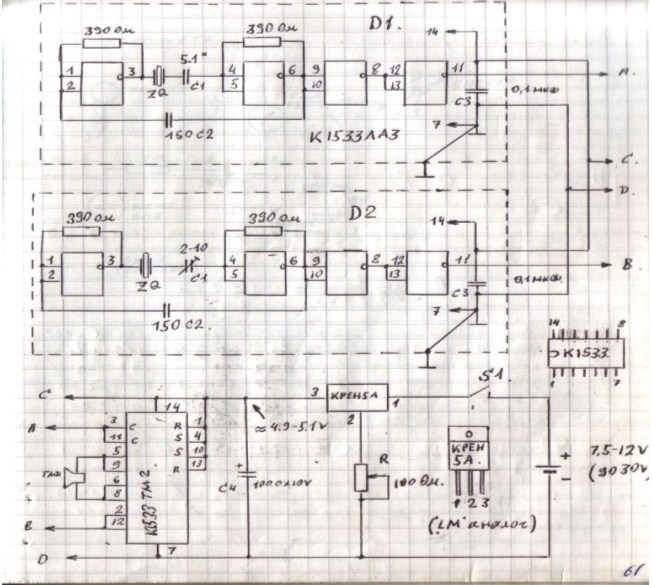 D1.
390 Ом
390 Ом
14
1
2
3
ZQ
5.1*
C1
4
5
6
9
10
8
12
13
11
C3
0,1 мкф
A.
150 C2
К1533ЛА3
7
C.
D.
D2
390 Ом
390 Ом
14
1
2
3
ZQ
2-10
C1
4
5
6
9
10
8
12
13
11
C3
0,1 мкф.
B
150 C2.
7
14
8
К1533
1
7
C
3
КРЕН5А
1
S1
2
≈ 4.9-5.1V
A
14
3
C
R
1
11
C
S
4
5
S
10
9
R
13
6
8
2
12
К1533ТМ2
B
D
7
+
C4
R
100 Ом.
0
КРЕН
5А.
1 2 3
(LM аналог)
+
7,5-12V
-
(до 30V)
61